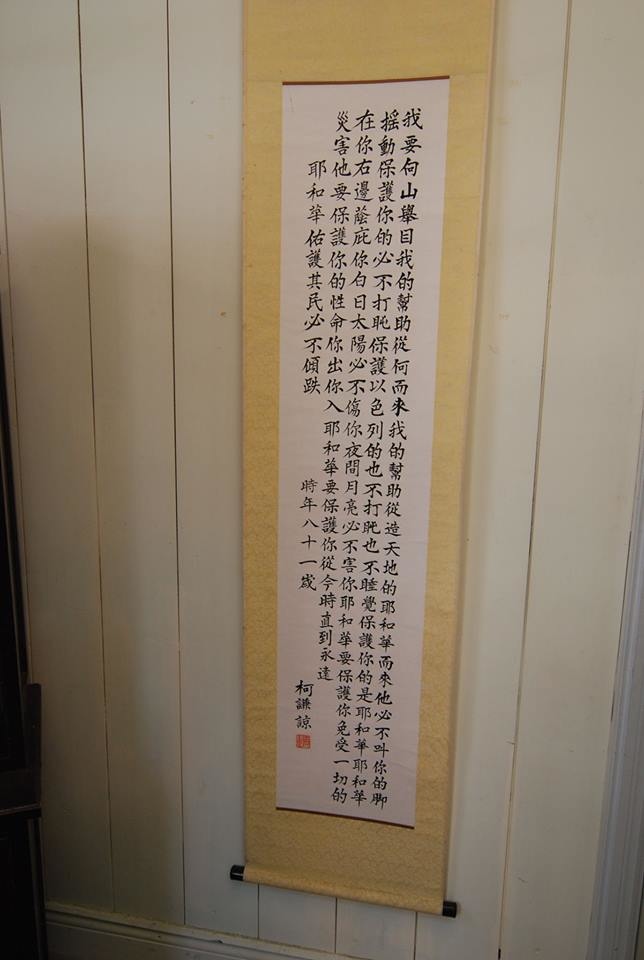 我要向山舉目我的幫助從何而來我的幫助從造天地的耶和華而來他必不叫你的脚
搖動保護你的必不打盹保護以色列的也不打盹也不睡覺保護你的是耶和華耶和華
在你右邊蔭庇你白日太陽必不傷你夜間月亮必不害你耶和華要保護你免受一切的
災害他要保護你的性命你出你入耶和華要保護你從今時直到永遠
耶和華佑護其民必不傾跌
時年八十一歲
柯謙諒